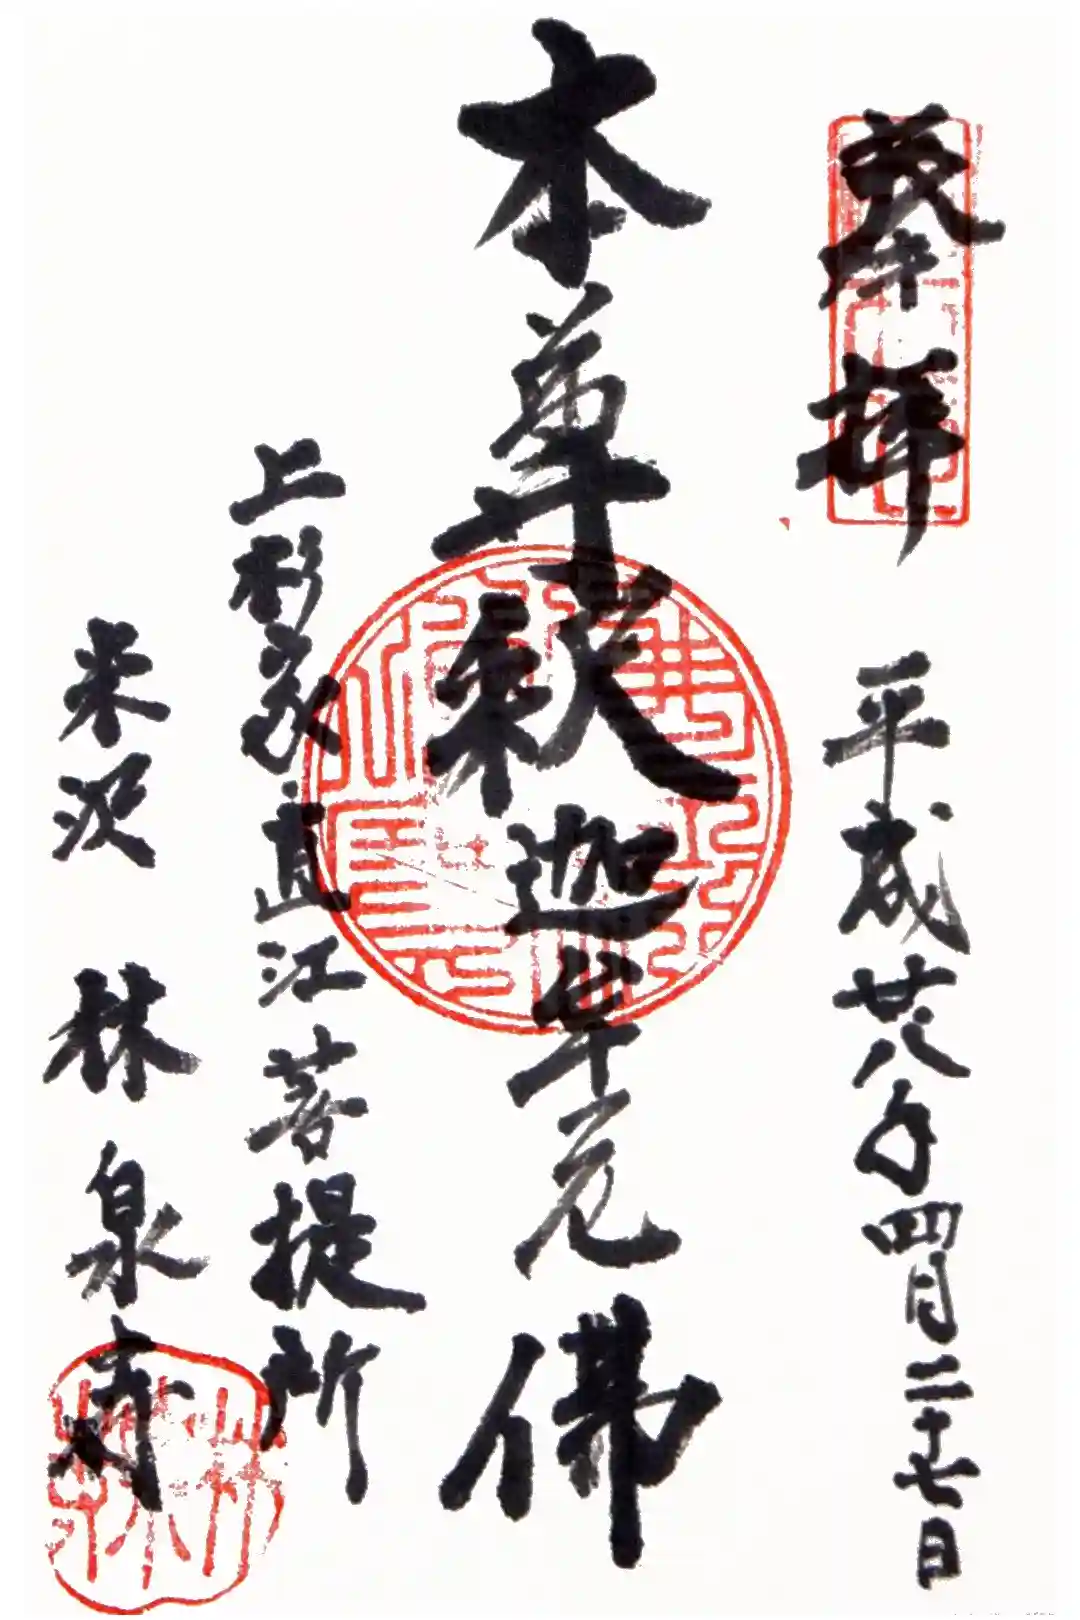 奉拝 平成廿八年四月二十七日
本尊釈迦牟尼佛
上杉家直江菩提所
米沢 林泉寺